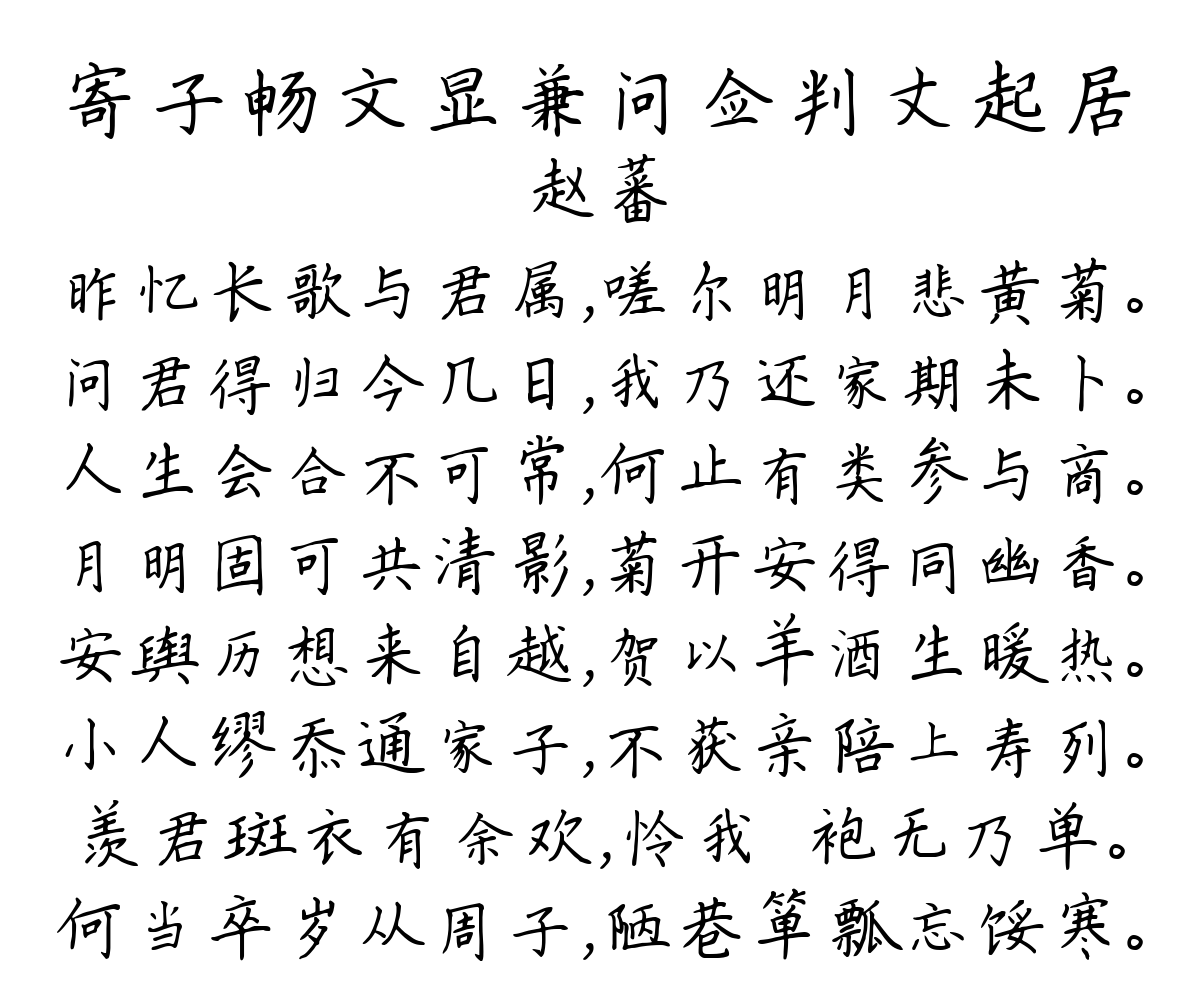 寄子畅文显兼问佥判丈起居
赵蕃
昨忆长歌与君属,嗟尔明月悲黄菊。
问君得归今几日,我乃还家期未卜。
人生会合不可常,何止有类参与商。
月明固可共清影,菊开安得同幽香。
安舆历想来自越,贺以羊酒生暖热。
小人缪忝通家子,不获亲陪上寿列。
羡君斑衣有余欢,怜我 袍无乃单。
何当卒岁从周子,陋巷箪瓢忘馁寒。